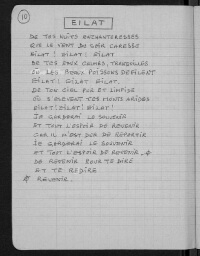 10
EILAT
DE TES NUITS ENCHANTERESSES
QUE LE VENT DU SOIR CARESSE
EILAT! EILAT! EILAT
DE TES EAUX CALMES, TRANQUILLES
OÙ LES BEAUX POISSONS DEFILENT
EILAT! EILAT! EILAT.
DE TON CIEL PUR ET LIMPIDE
OÙ S'ELEVENT TES MONTS ARIDES
EILAT! EILAT! EILAT
JE GARDERAI LE SOUVENIR
ET TOUT L'ESPOIR DE REVENIR
CAR IL M'EST DUR DE REPARTIR
JE GARDERAI LE SOUVENIR
ET TOUT L'ESPOIR DE REVENIR.
DE REVENIR POUR TE DIRE
ET TE REDIRE
REVENIR.